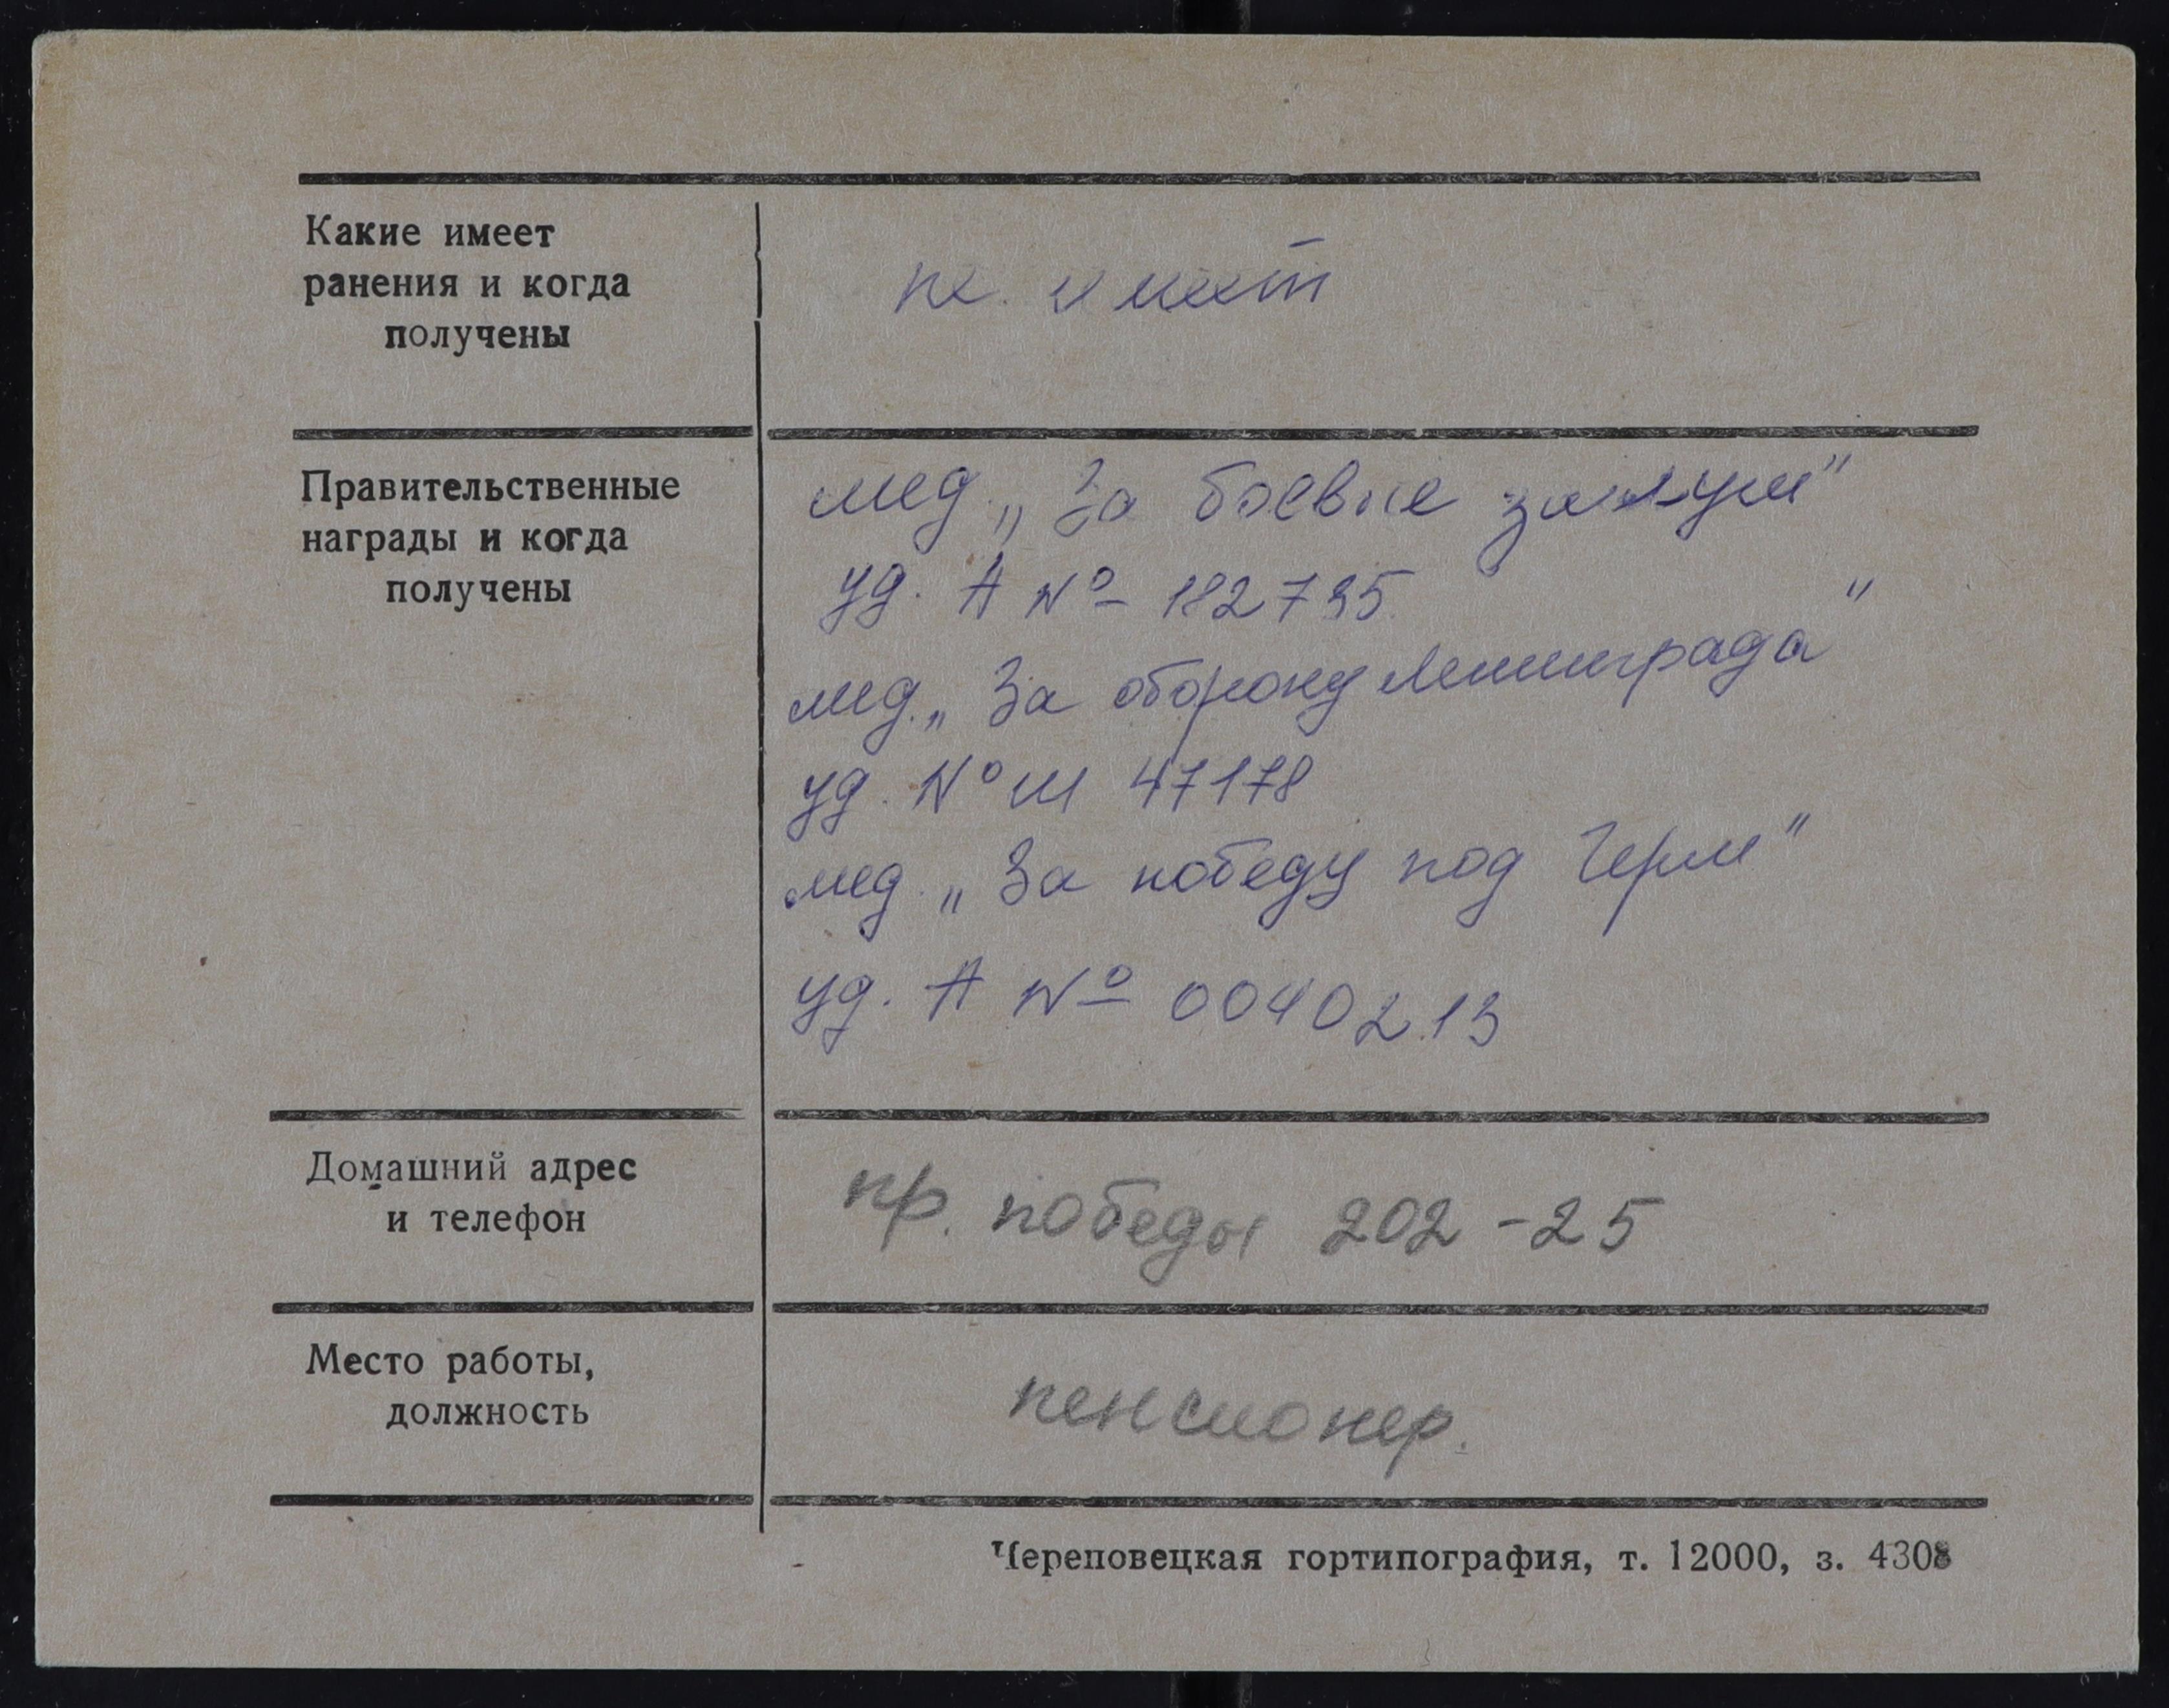 Какие имеет
ранения и когда
получены
не имеет
Правительственные
награды и когда
получены
мед. „За боевые заслуги"
уд. А № 182795
мед. „За оборону Ленинграда"
уд. № Ш 47178
мед. „За победу под Герм"
уд. А № 0040213
Домашний адрес
и телефон
пр. победы 202-25
Место работы,
должность
пенсионер.
Череповецкая гортипография, т. 12000, з. 4308